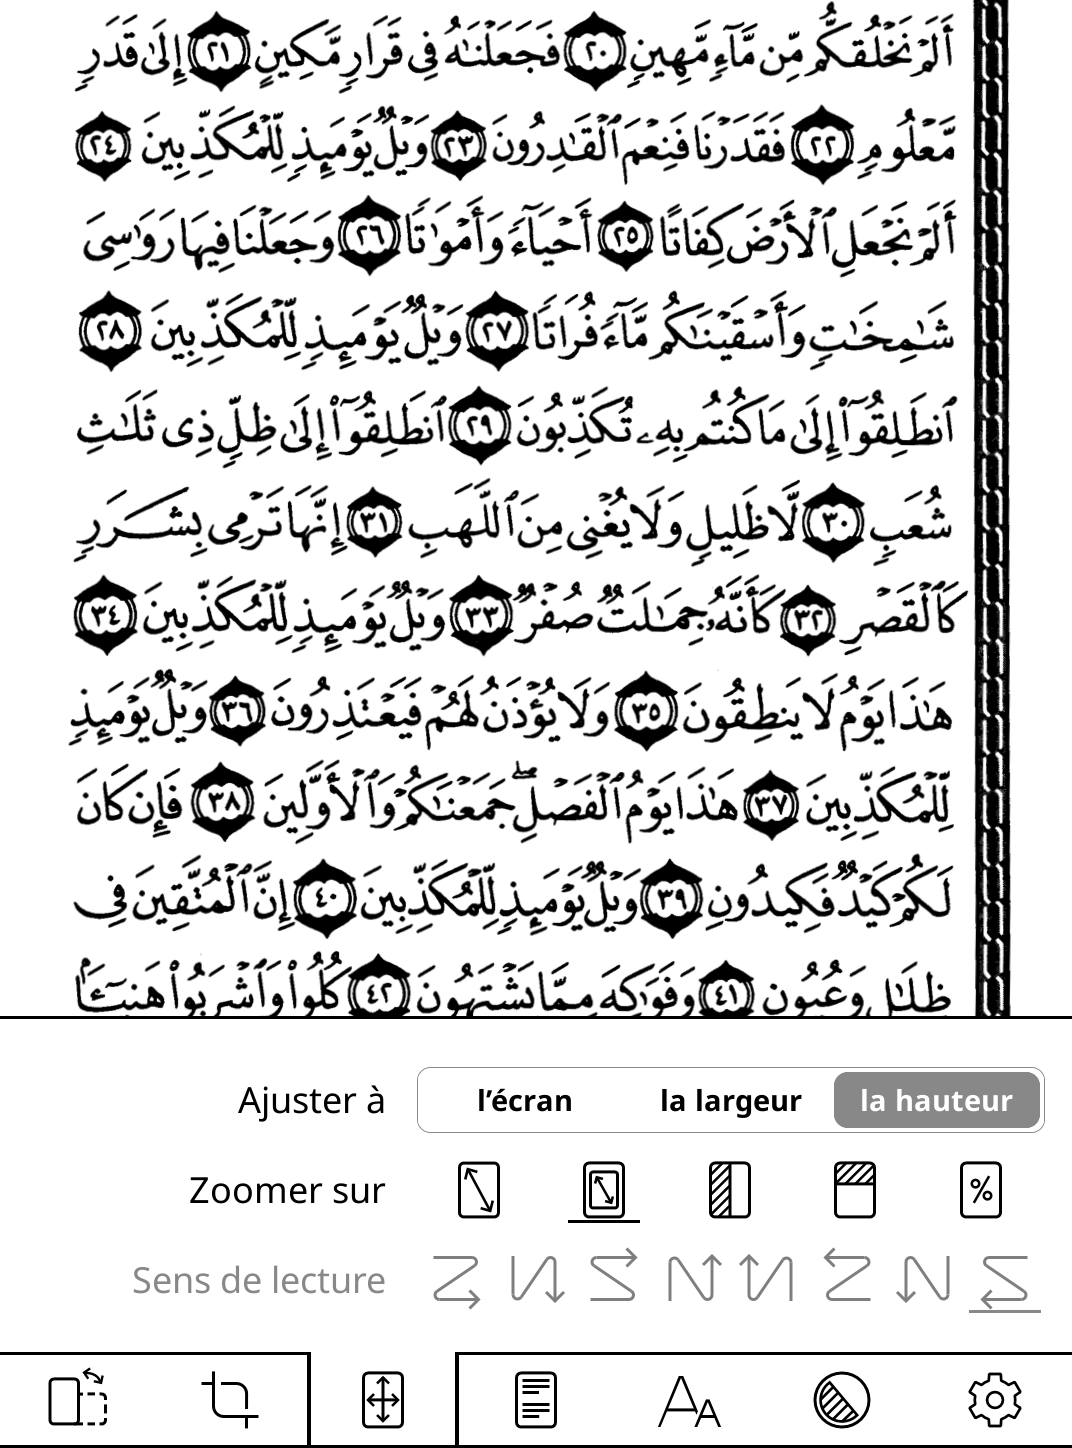 أَلَمْ نَخْلُقكُّم مِّن مَّآءٍ مَّهِينٍ ٢٠ فَجَعَلْنَٰهُ فِى قَرَارٍ مَّكِينٍ ٢١ إِلَىٰ قَدَرٍ
مَّعْلُومٍ ٢٢ فَقَدَرْنَا فَنِعْمَ ٱلْقَٰدِرُونَ ٢٣ وَيْلٌ يَوْمَئِذٍ لِّلْمُكَذِّبِينَ ٢٤
أَلَمْ نَجْعَلِ ٱلْأَرْضَ كِفَاتًا ٢٥ أَحْيَآءً وَأَمْوَٰتًا ٢٦ وَجَعَلْنَا فِيهَا رَوَٰسِىَ
شَٰمِخَٰتٍ وَأَسْقَيْنَٰكُم مَّآءً فُرَاتًا ٢٧ وَيْلٌ يَوْمَئِذٍ لِّلْمُكَذِّبِينَ ٢٨
ٱنطَلِقُوٓا۟ إِلَىٰ مَا كُنتُم بِهِۦ تُكَذِّبُونَ ٢٩ ٱنطَلِقُوٓا۟ إِلَىٰ ظِلٍّ ذِى ثَلَٰثِ
شُعَبٍ ٣٠ لَّا ظَلِيلٍ وَلَا يُغْنِى مِنَ ٱللَّهَبِ ٣١ إِنَّهَا تَرْمِى بِشَرَرٍ
كَٱلْقَصْرِ ٣٢ كَأَنَّهُۥ جِمَٰلَتٌ صُفْرٌ ٣٣ وَيْلٌ يَوْمَئِذٍ لِّلْمُكَذِّبِينَ ٣٤
هَٰذَا يَوْمُ لَا يَنطِقُونَ ٣٥ وَلَا يُؤْذَنُ لَهُمْ فَيَعْتَذِرُونَ ٣٦ وَيْلٌ يَوْمَئِذٍ
لِّلْمُكَذِّبِينَ ٣٧ هَٰذَا يَوْمُ ٱلْفَصْلِ ۖ جَمَعْنَٰكُمْ وَٱلْأَوَّلِينَ ٣٨ فَإِن كَانَ
لَكُمْ كَيْدٌ فَكِيدُونِ ٣٩ وَيْلٌ يَوْمَئِذٍ لِّلْمُكَذِّبِينَ ٤٠ إِنَّ ٱلْمُتَّقِينَ فِى
ظِلَٰلٍ وَعُيُونٍ ٤١ وَفَوَٰكِهَ مِمَّا يَشْتَهُونَ ٤٢ كُلُوا۟ وَٱشْرَبُوا۟ هَنِيٓـًٔۢا
Ajuster à l’écran la largeur la hauteur
Zoomer sur %
Sens de lecture
AA